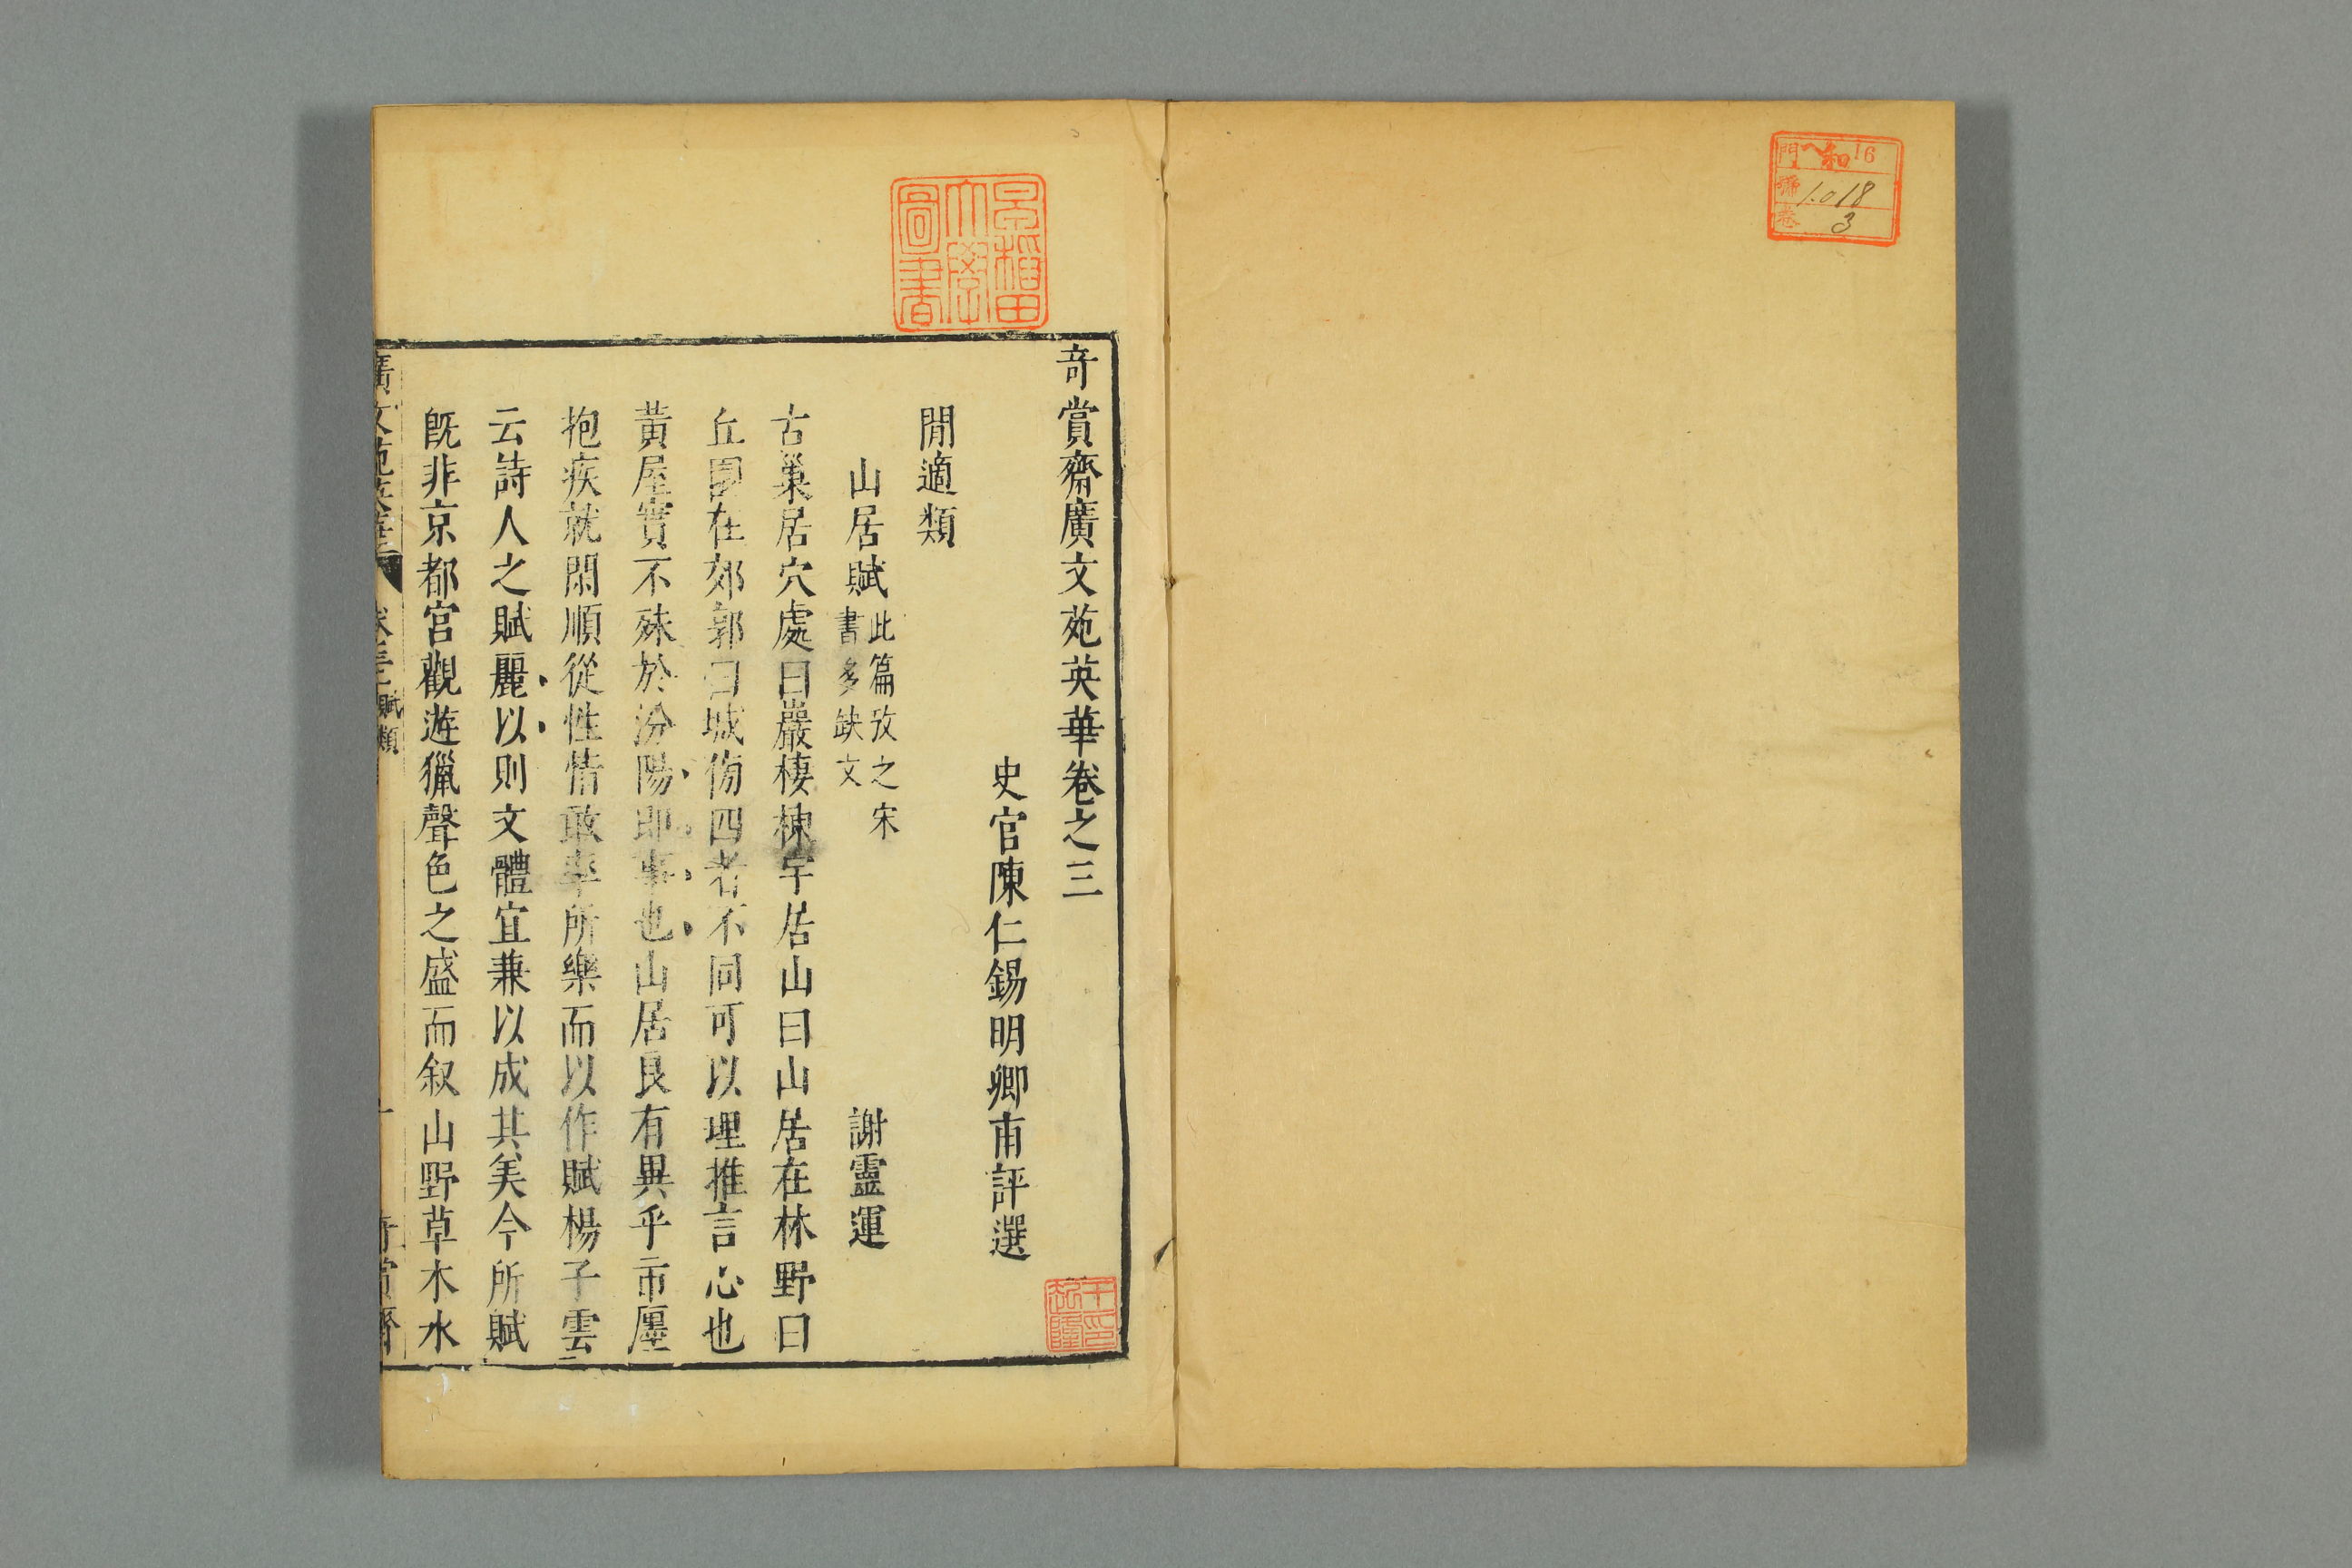 門 ヘ和16
號 1.018
卷 3
奇賞齋廣文苑英華卷之三
史官陳仁錫明卿甫評選
閒適類
山居賦 此篇攷之宋書多缺文 謝靈運
古巢居穴處曰巖棲棟宇居山曰山居在林野曰
丘園在郊郭曰城傍四者不同可以理推言心也
黃屋實不殊於汾陽即事也山居良有異乎市廛
抱疾就閑順從性情敢率所樂而以作賦楊子雲
云詩人之賦麗以則文體宜兼以成其美今所賦
旣非京都宫觀遊獵聲色之盛而叙山野草木水
廣文苑英華 卷三 賦類 一 奇賞齋
早稻田大學圖書